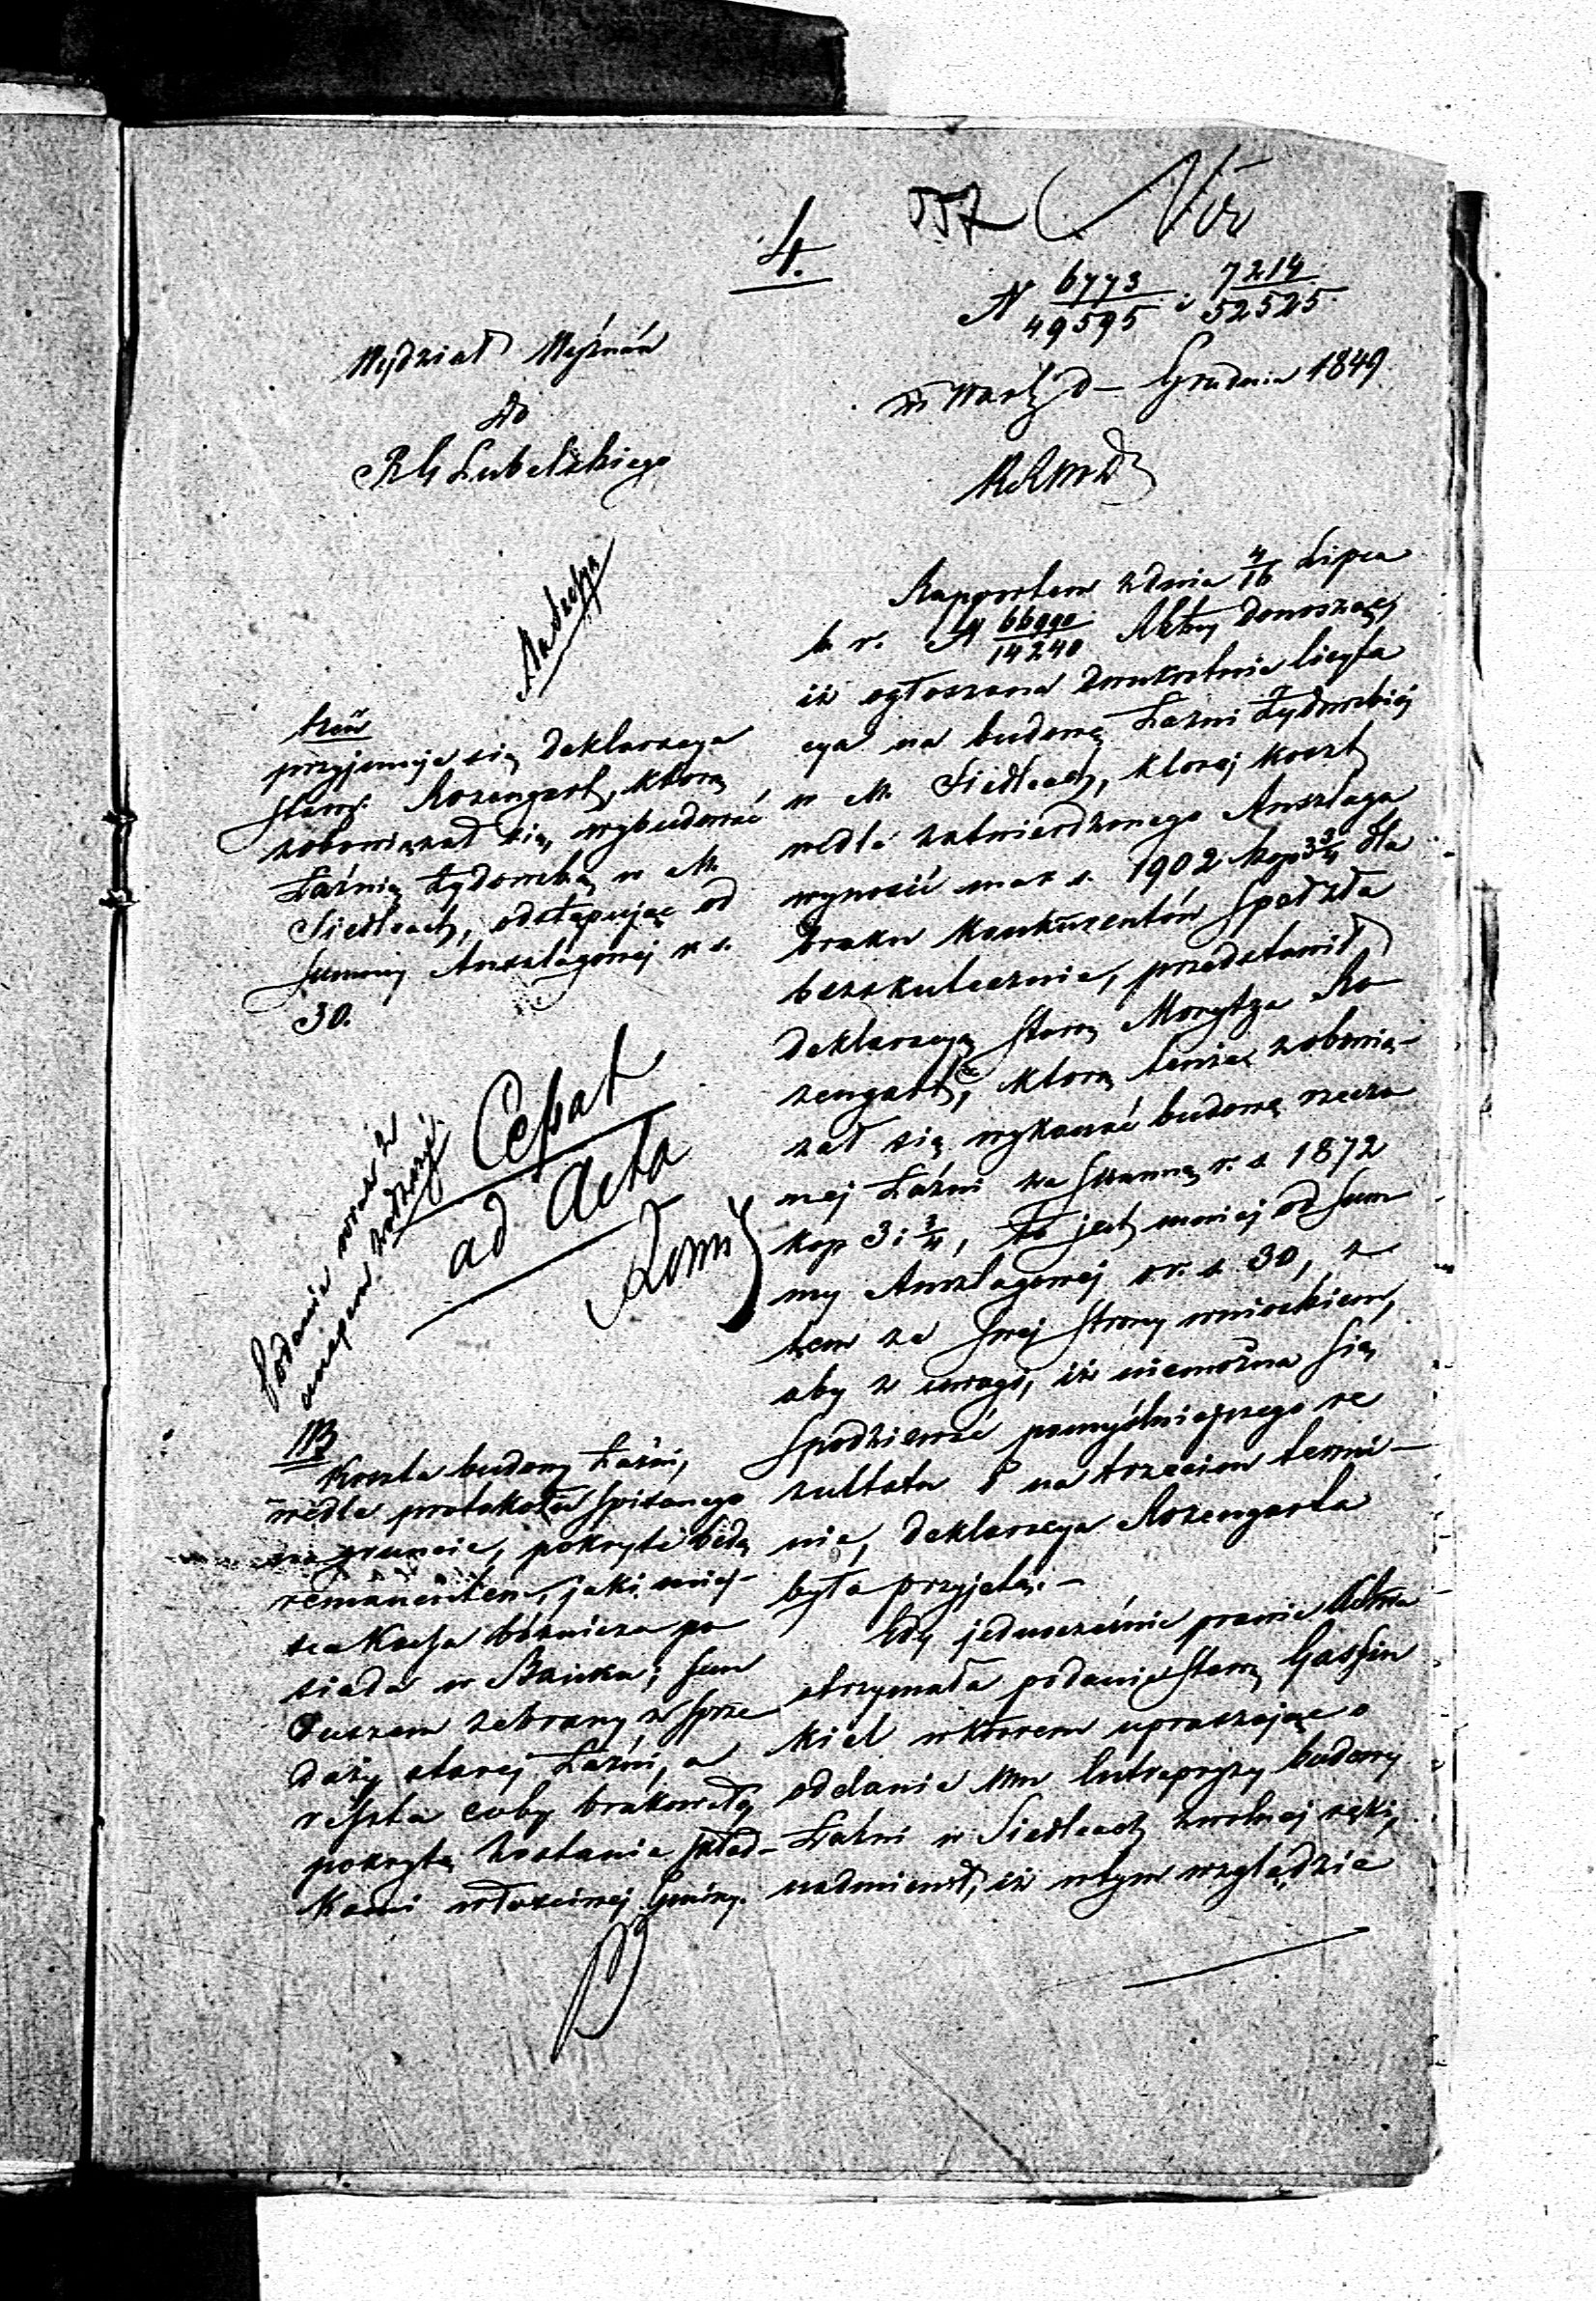 557
4.
N 6773/49595 i 7214/52525
w Warsz d – Grudnia 1849.
Wydział Wyznań
do
RG Lubelskiego
Rapportem z dnia 4/16 Lipca
b. r. N 66990/14240 donosząc
iż ogłoszona dwukrotnie licyta
cya na budowę Łaźni Żydowskiej
w M. Siedlcach, której koszt
wedle zatwierdzonego Anszlagu
wynosić ma r. s. 1902 kop 3¾ dla
braku konkurentów spełzła
bezskutecznie, przedstawił
deklaracyą Staroz. Morytza Ro
zengart, którą tenże zobowią-
zał się wykonać budowę rzeczo
nej Łaźni za summę r. s. 1872
kop 3 i ¾, to jest mniej od Sum
my Anszlagowej o r. s. 30, z
tem ze swej strony wnioskiem,
aby z uwagi, iż niemożna się
spodziewać pomyślniejszego re
zultatu i na trzecim termi-
nie, deklaracya Rozengarta
była przyjętą.–
Gdy jednocześnie prawie
otrzymała podanie Staroz.
w którem upraszając o
oddanie mu Entrepryzy budowy
Łaźni w Siedlcach z wolnej ręki,
nadmienił, iż w tym względzie
treść
przyjmuje się deklaracya
Staroz. Rozengart, którą
zobowiązał się wybudować
Łaźnię Żydowską w M.
Siedlcach, odstępując od
Summy Anszlagowej r. s.
30.
Podanie wraz z
Cessat
ad Acta
NB
Koszta budowy Łaźni,
wedle protokołu spisanego
na gruncie, pokryte będą
remanentem, jaki miej-
sca Kassa bóżnicza po
siada w Banku; fun
duszem zebrany z sprze
daży starej Łaźni, a
reszta coby brakowało
pokrytą zostanie skład-
kami właściwej Gminy.